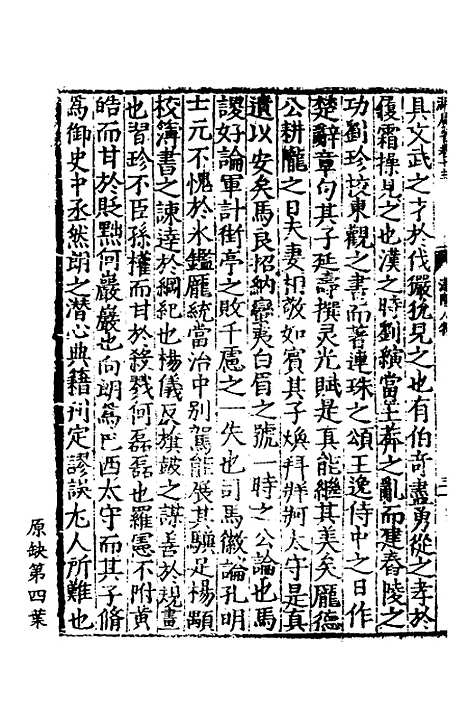 具文武之才於伐玁狁見之也有伯奇盡勇從之孝於
履霜操見之也漢之時劉縯當王莽之亂而建舂陵之
功劉珍校東觀之書而著連珠之頌王逸侍中之日作
楚辭章句其子延壽撰灵光賦是真能繼其美矣龐德
公耕隴之日夫妻相敬如賓其子煥拜牂牁太守是真
遺以安矣馬良招納蠻夷白眉之號一時之公論也馬
謖好論軍計街亭之敗千慮之一失也司馬徽論孔明
士元不愧於水鑑龐統當治中别駕能展其驥足楊顒
校簿書之諫達於綱紀也楊儀反旗鼓之謀善於規畫
也習珍不臣孫權而甘於殺戮何磊磊也羅憲不附黄
皓而甘於貶黜何巖巖也向朗爲巴西太守而其子脩
爲御史中丞然朗之潜心典籍刊定謬誤尤人所難也
原缺第四葉